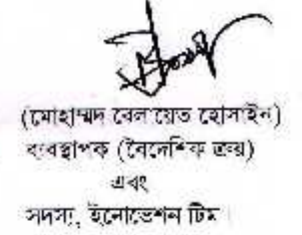 (মোহাম্মদ বেলায়েত হোসাইন)
ব্যবস্থাপক (বৈদেশিক ক্রয়)
এবং
সদস্য, ইনোভেশন টিম।